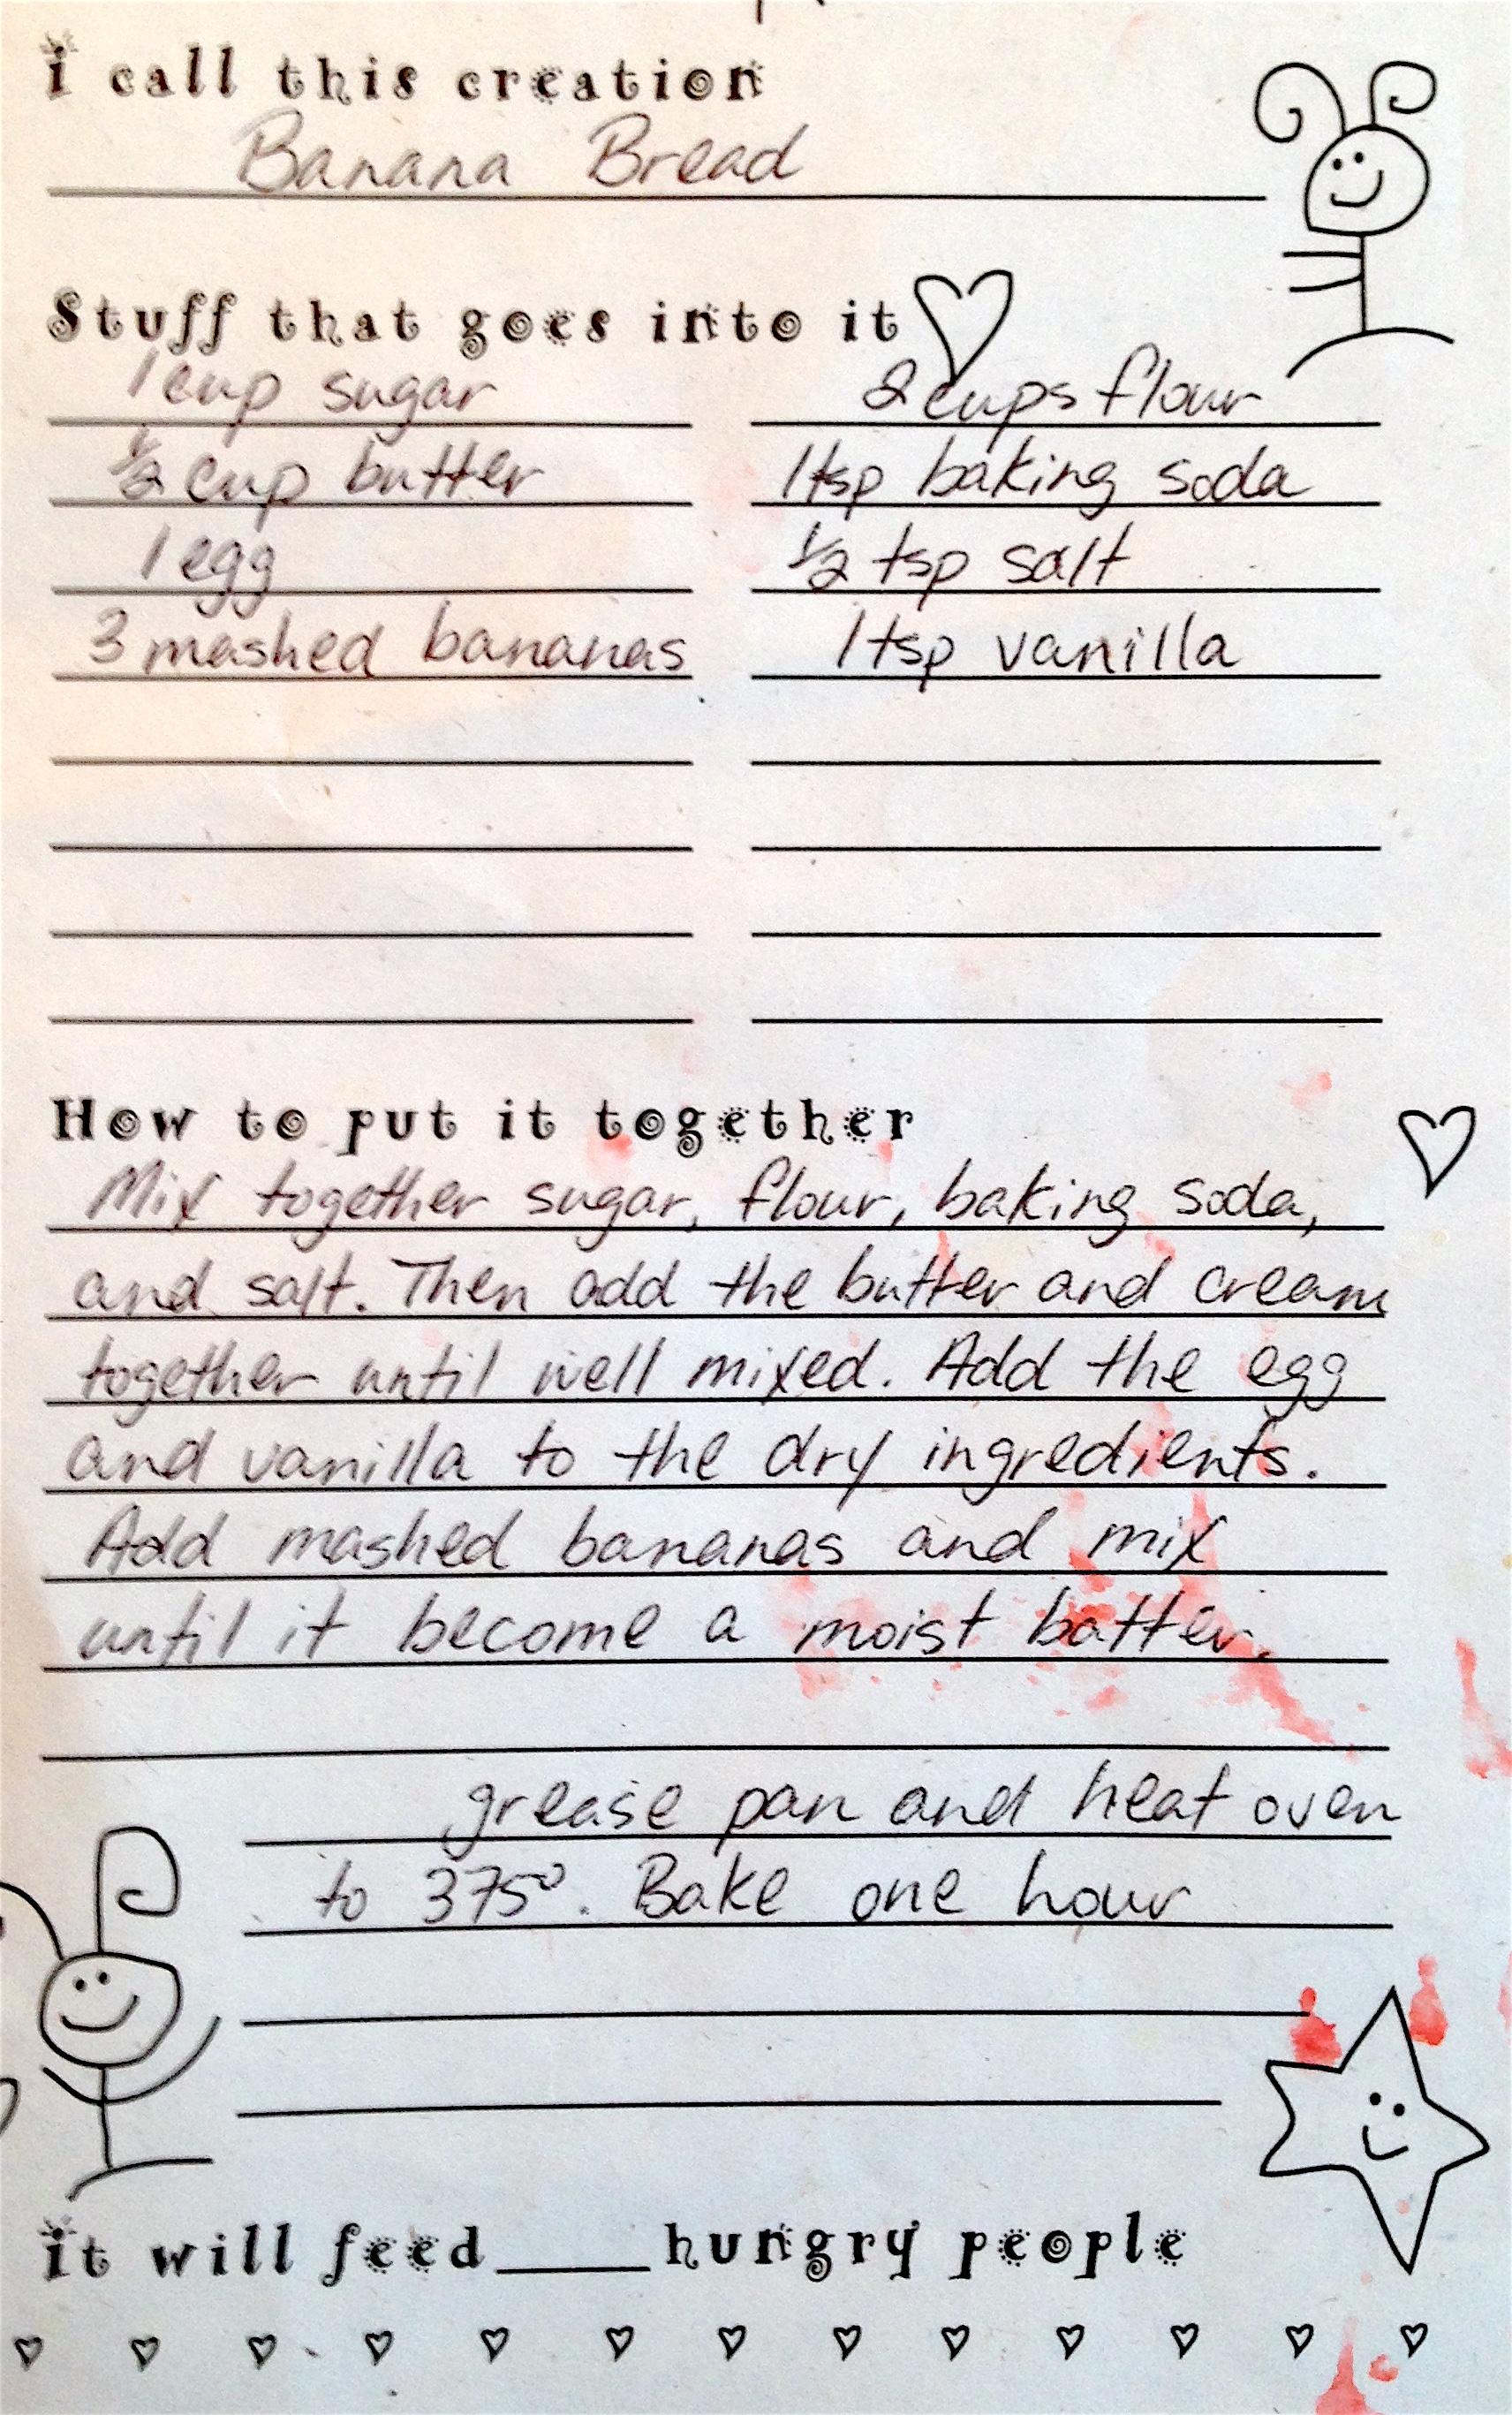 i call this creation
Banana Bread
Stuff that goes into it
1 cup sugar
2 cups flour
1/2 cup butter
1 tsp baking soda
1 egg
1/2 tsp salt
3 mashed bananas
1 tsp vanilla
How to put it together
Mix together sugar, flour, baking soda,
and salt. Then add the butter and cream
together until well mixed. Add the egg
and vanilla to the dry ingredients.
Add mashed bananas and mix
until it become a moist batter.
grease pan and heat oven
to 375°. Bake one hour
it will feed____hungry people